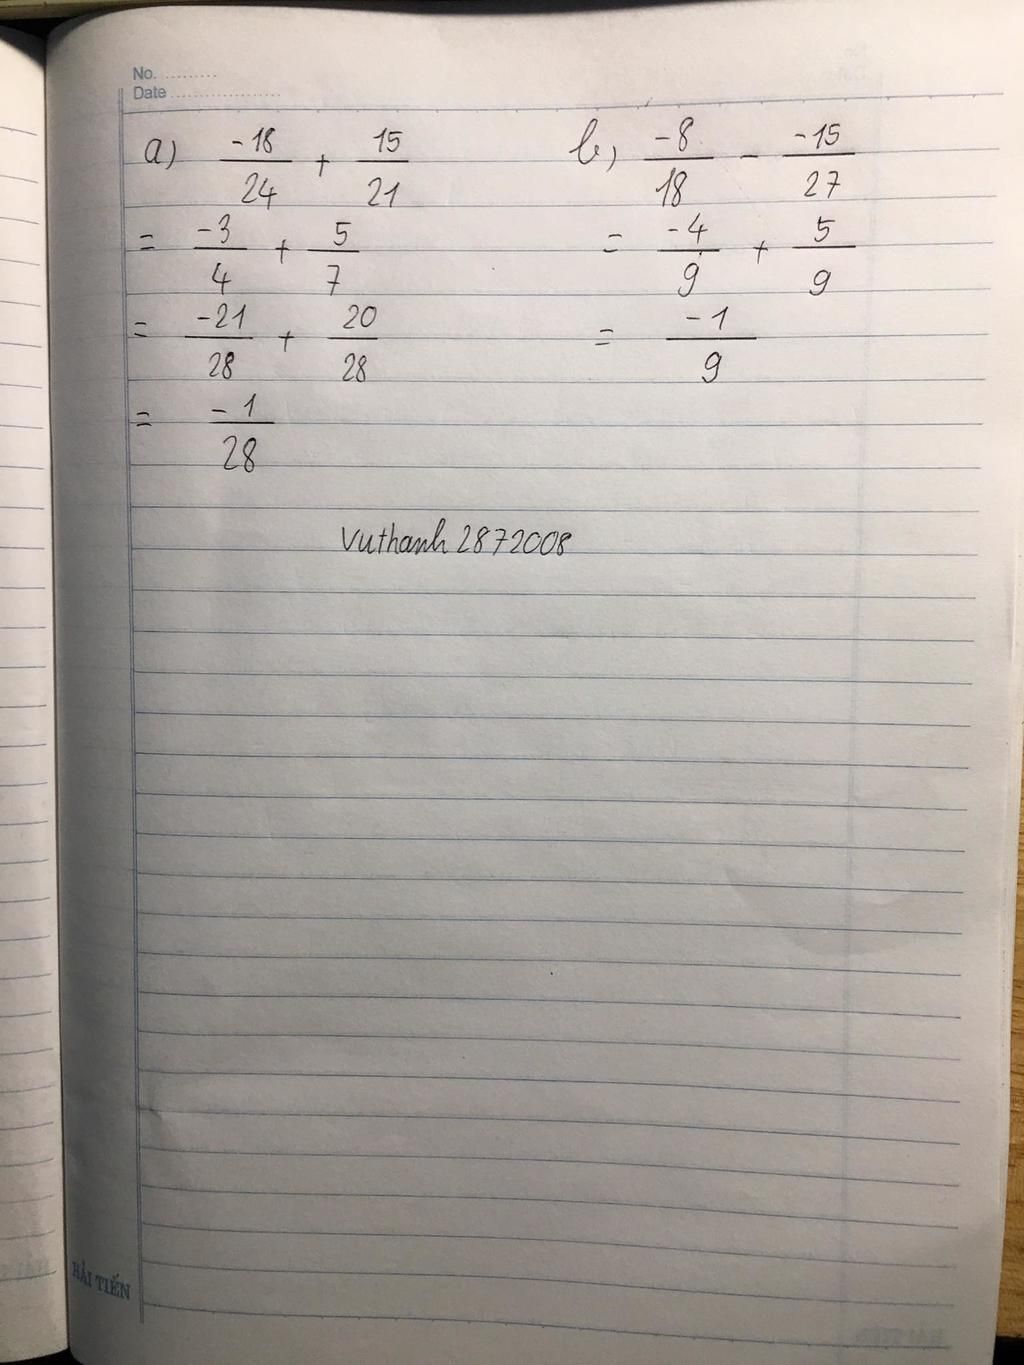 No. ..........
Date ....................
a) -18/24 + 15/21
= -3/4 + 5/7
= -21/28 + 20/28
= -1/28
b, -8/18 - -15/27
= -4/9 + 5/9
= -1/9
Vuthanh 2872008
HẢI TIẾN